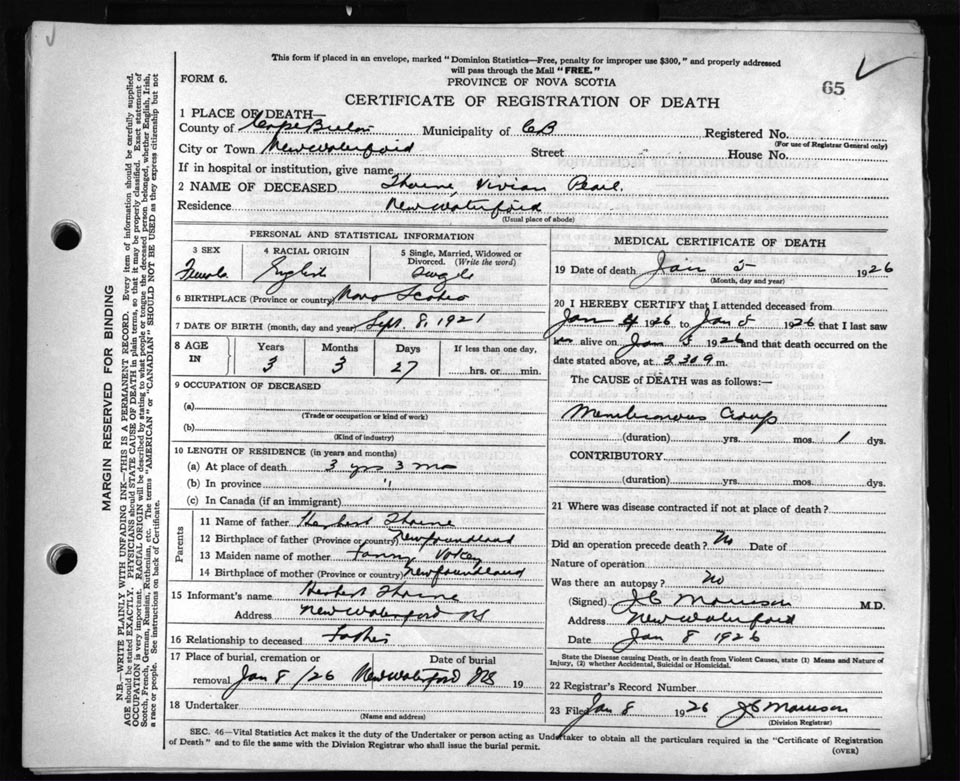 This form if placed in an envelope, marked "Dominion Statistics—Free, penalty for improper use $300," and properly addressed
will pass through the Mail "FREE."
FORM 6.
PROVINCE OF NOVA SCOTIA
65
CERTIFICATE OF REGISTRATION OF DEATH
1 PLACE OF DEATH—
County of Cape Breton Municipality of CB Registered No.
(For use of Registrar General only)
City or Town New Waterford Street House No.
If in hospital or institution, give name
2 NAME OF DECEASED Thorne, Vivian Pearl
Residence New Waterford
(Usual place of abode)
PERSONAL AND STATISTICAL INFORMATION
3 SEX 4 RACIAL ORIGIN 5 Single, Married, Widowed or Divorced. (Write the word)
Female English Single
6 BIRTHPLACE (Province or country) Nova Scotia
7 DATE OF BIRTH (month, day and year) Sept. 8, 1921
8 AGE IN Years Months Days If less than one day,
3 3 27 hrs. or min.
9 OCCUPATION OF DECEASED
(a)
(Trade or occupation or kind of work)
(b)
(Kind of industry)
10 LENGTH OF RESIDENCE (in years and months)
(a) At place of death 3 yrs 3 mo
(b) In province "
(c) In Canada (if an immigrant)
Parents
11 Name of father Herbert Thorne
12 Birthplace of father (Province or country) Newfoundland
13 Maiden name of mother Fanny
14 Birthplace of mother (Province or country) Newfoundland
15 Informant's name Herbert Thorne
Address New Waterford NS
16 Relationship to deceased Father
17 Place of burial, cremation or removal Date of burial
Jan 8/26 New Waterford NS 19
18 Undertaker
(Name and address)
MEDICAL CERTIFICATE OF DEATH
19 Date of death Jan 5 1926
(Month, day and year)
20 I HEREBY CERTIFY that I attended deceased from
Jan 4 1926 to Jan 5 1926 that I last saw
her alive on Jan 5 1926 and that death occurred on the
date stated above, at 3.30 m.
The CAUSE of DEATH was as follows:—
Membranous Croup
(duration) yrs. mos. 1 dys.
CONTRIBUTORY
(duration) yrs. mos. dys.
21 Where was disease contracted if not at place of death?
Did an operation precede death? No Date of
Nature of operation
Was there an autopsy? No
(Signed) JC Morrison M.D.
Address New Waterford
Date Jan 8 1926
State the Disease causing Death, or in death from Violent Causes, state (1) Means and Nature of
Injury, (2) whether Accidental, Suicidal or Homicidal.
22 Registrar's Record Number
23 Filed Jan 8 1926 JC Morrison
(Division Registrar)
SEC. 46—Vital Statistics Act makes it the duty of the Undertaker or person acting as Undertaker to obtain all the particulars required in the "Certificate of Registration
of Death" and to file the same with the Division Registrar who shall issue the burial permit.
(OVER)
MARGIN RESERVED FOR BINDING
N.B.—WRITE PLAINLY WITH UNFADING INK—THIS IS A PERMANENT RECORD. Every item of information should be carefully supplied.
AGE should be stated EXACTLY. PHYSICIANS should STATE CAUSE OF DEATH in plain terms, so that it may be properly classified. Exact statement of
OCCUPATION is very important. RACIAL ORIGIN will be described by stating to what people or tongue the deceased person belonged, whether English, Irish,
Scotch, French, German, Russian, Ruthenian, etc. The terms "AMERICAN" or "CANADIAN" SHOULD NOT BE USED as they express citizenship but not
a race or people. See instructions on back of Certificate.